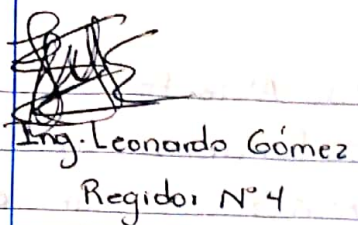 Ing. Leonardo Gómez
Regidor N° 4